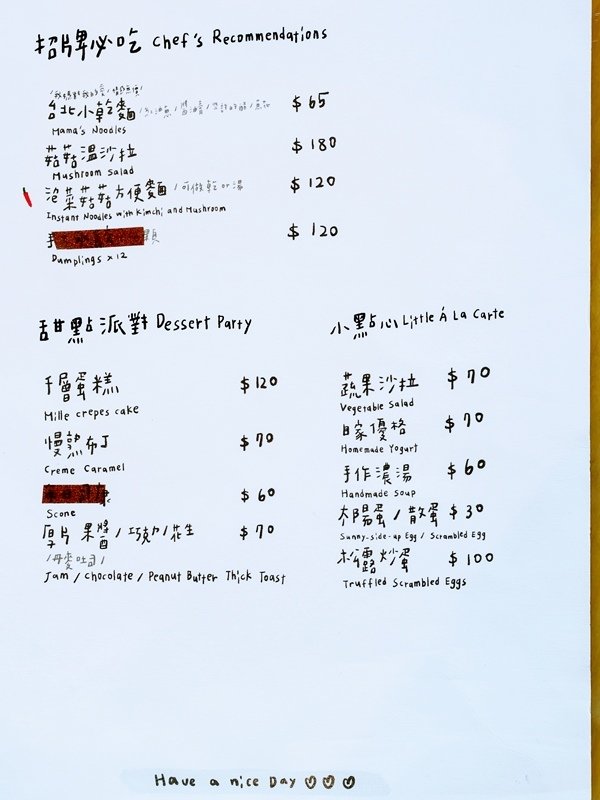 招牌必吃 Chef's Recommendations
台北小乾麵 $65
Mama's Noodles
菇菇溫沙拉 $180
Mushroom Salad
泡菜菇菇方便麵 /可做乾or湯 $120
Instant Noodles with Kimchi and Mushroom
手 顆 $120
Dumplings x12
甜點派對 Dessert Party
千層蛋糕 $120
Mille crepes cake
慢熟布丁 $70
Creme Caramel
$60
Scone
厚片 果醬/巧克力/花生 $70
/丹麥吐司/
Jam / Chocolate / Peanut Butter Thick Toast
小點心 Little Á La Carte
蔬果沙拉 $70
Vegetable Salad
自家優格 $70
Homemade Yogurt
手作濃湯 $60
Handmade Soup
太陽蛋 / 散蛋 $30
Sunny-side-up Egg / Scrambled Egg
松露炒蛋 $100
Truffled Scrambled Eggs
Have a nice Day